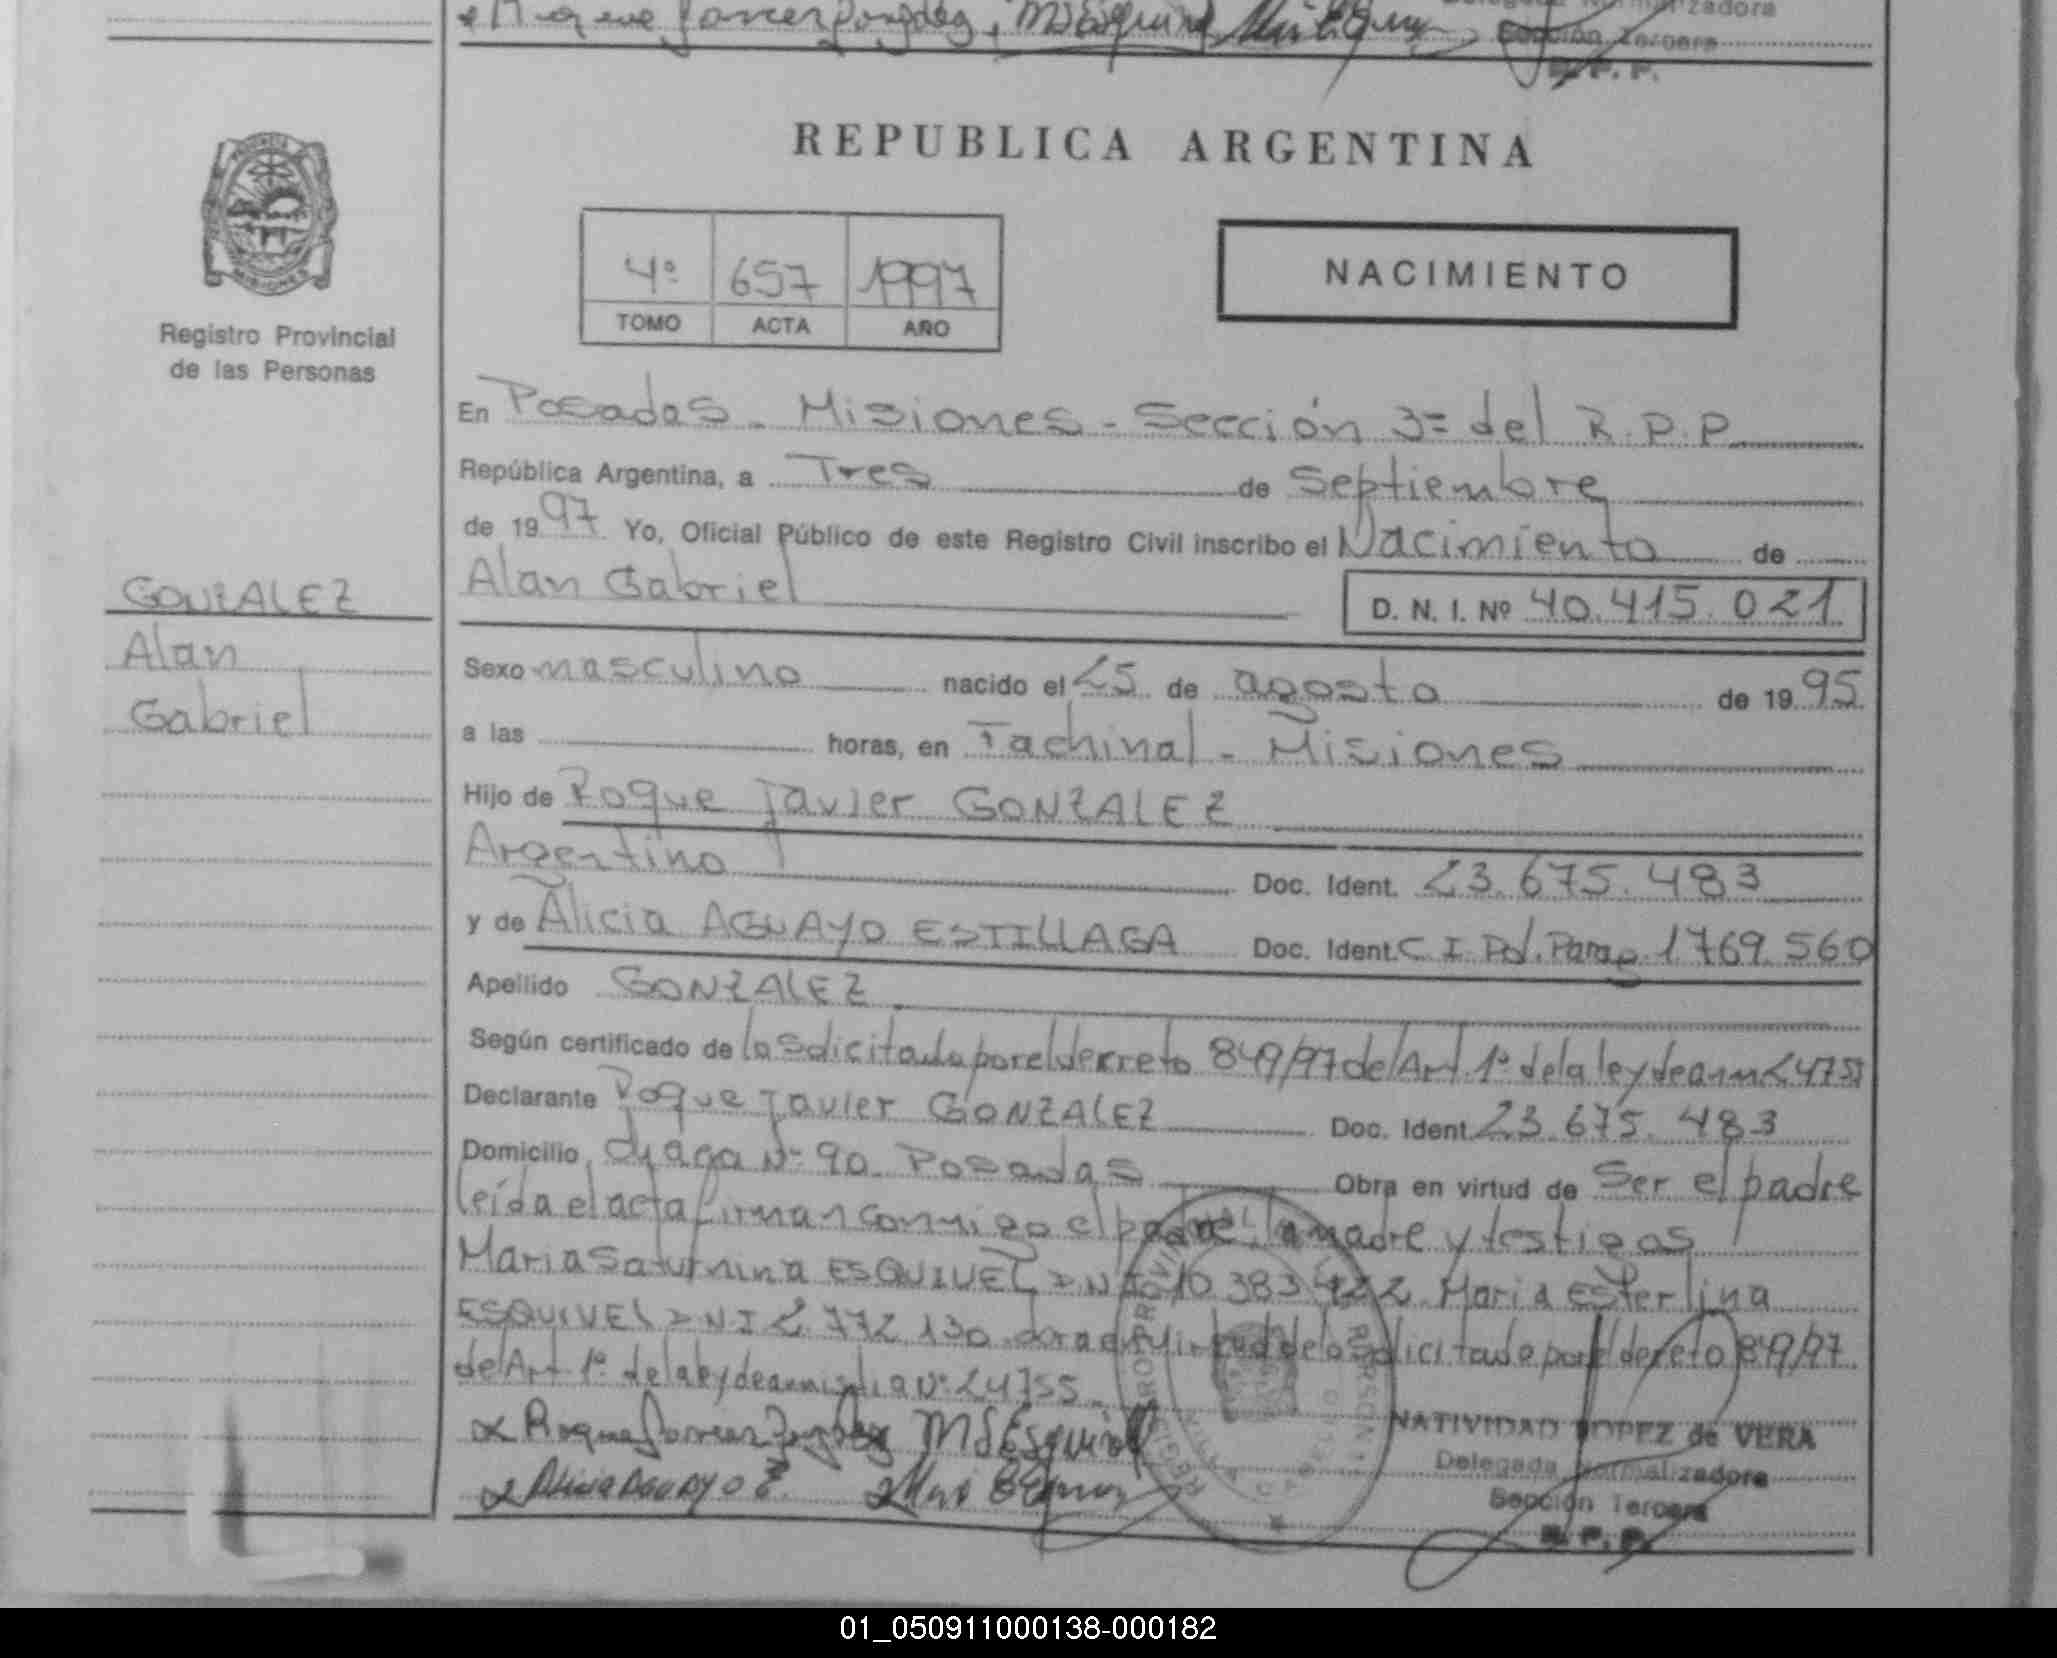 Delegada Normalizadora
Sección Tercera
R. P. P.
PROVINCIA DE
MISIONES
Registro Provincial
de las Personas
REPUBLICA ARGENTINA
4º 657 1997
TOMO ACTA AÑO
NACIMIENTO
En Posadas - Misiones - Sección 3ª del R.P.P.
República Argentina, a Tres de Septiembre
de 1997 Yo, Oficial Público de este Registro Civil inscribo el Nacimiento de
Alan Gabriel D. N. I. Nº 40.415.021
GONZALEZ
Alan
Gabriel
Sexo masculino nacido el 25 de agosto de 1995
a las horas, en Fachinal - Misiones
Hijo de Roque Javier GONZALEZ
Argentino Doc. Ident. 23.675.483
y de Alicia AGUAYO ESTILLAGA Doc. Ident. C I. Pol. Parag 1769.560
Apellido GONZALEZ
Según certificado de lo solicitado por el decreto 849/97 del Art. 1º de la ley de amn 24755
Declarante Roque Javier GONZALEZ Doc. Ident. 23.675.483
Domicilio Nº 90 Posadas Obra en virtud de Ser el padre
leída el acta firman conmigo el padre, la madre y testigos
Maria Saturnina ESQUIVEL DNI 10 383 422 Maria Esterlina
ESQUIVEL DNI 2.772.130 solicitado por el decreto 849/97
del Art 1º de la ley de amnistia Nº 24755
M S Esquivel
Alicia AGUAYO E.
NATIVIDAD LOPEZ de VERA
Delegada Normalizadora
Sección Tercera
R. P. P.
01_050911000138-000182